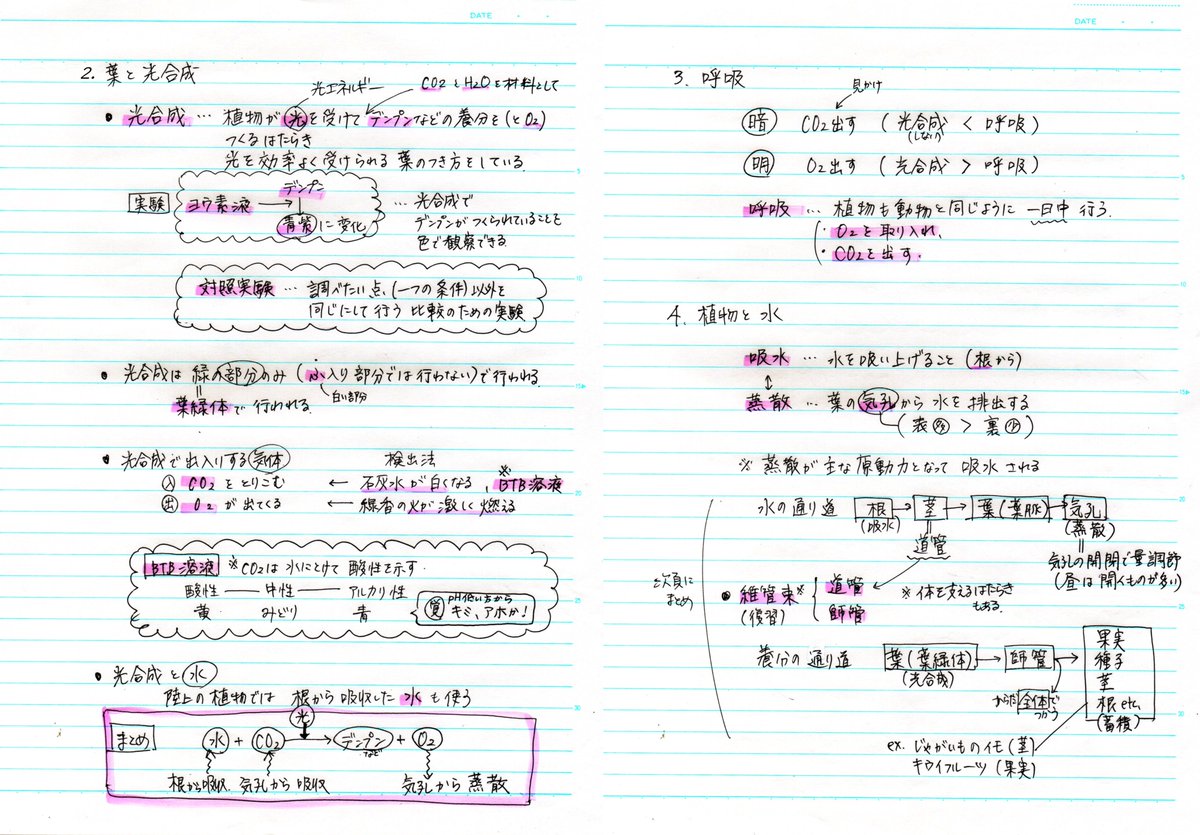 DATE
2. 葉と光合成
光エネルギー
CO2とH2Oを材料として
• 光合成 … 植物が光を受けてデンプンなどの養分を(とO2)
つくるはたらき
光を効率よく受けられる葉のつき方をしている.
実験 ヨウ素液 → デンプン
↓
青紫に変化
… 光合成で
デンプンがつくられていることを
色で観察できる.
対照実験 … 調べたい点(一つの条件)以外を
同じにして行う比較のための実験
• 光合成は緑の部分のみ(ふ入り部分では行わない)で行われる.
白い部分
葉緑体で行われる.
• 光合成で出入りする気体 検出法
入 CO2をとりこむ ← 石灰水が白くなる、※BTB溶液
出 O2が出てくる ← 線香の火が激しく燃える
BTB溶液 ※CO2は水にとけて酸性を示す.
酸性 ― 中性 ― アルカリ性
黄 みどり 青
覚 pH低い方から
キミ、アホか!
• 光合成と水
陸上の植物では 根から吸収した水も使う
光
まとめ 水 + CO2 → デンプンなど + O2
根から吸収 気孔から吸収 気孔から蒸散
DATE
3. 呼吸
見かけ
暗 CO2出す (光合成 < 呼吸)
(しない)
明 O2出す (光合成 > 呼吸)
呼吸 … 植物も動物と同じように 一日中 行う.
・O2を取り入れ、
・CO2を出す.
4. 植物と水
吸水 … 水を吸い上げること(根から)
↕
蒸散 … 葉の気孔から水を排出する
(表多 > 裏少)
※ 蒸散が主な原動力となって 吸水される
水の通り道 根 → 茎 → 葉(葉脈) → 気孔
(吸水) (蒸散)
道管
気孔の開閉で量調節
(昼は開くものが多い)
次頁にまとめ
• 維管束※ 道管
(復習) 師管
※体を支えるはたらきもある.
養分の通り道 葉(葉緑体) → 師管 →
(光合成)
からだ全体でつかう
果実
種子
茎
根 etc.
(蓄積)
ex. じゃがいものイモ(茎)
キウイフルーツ(果実)